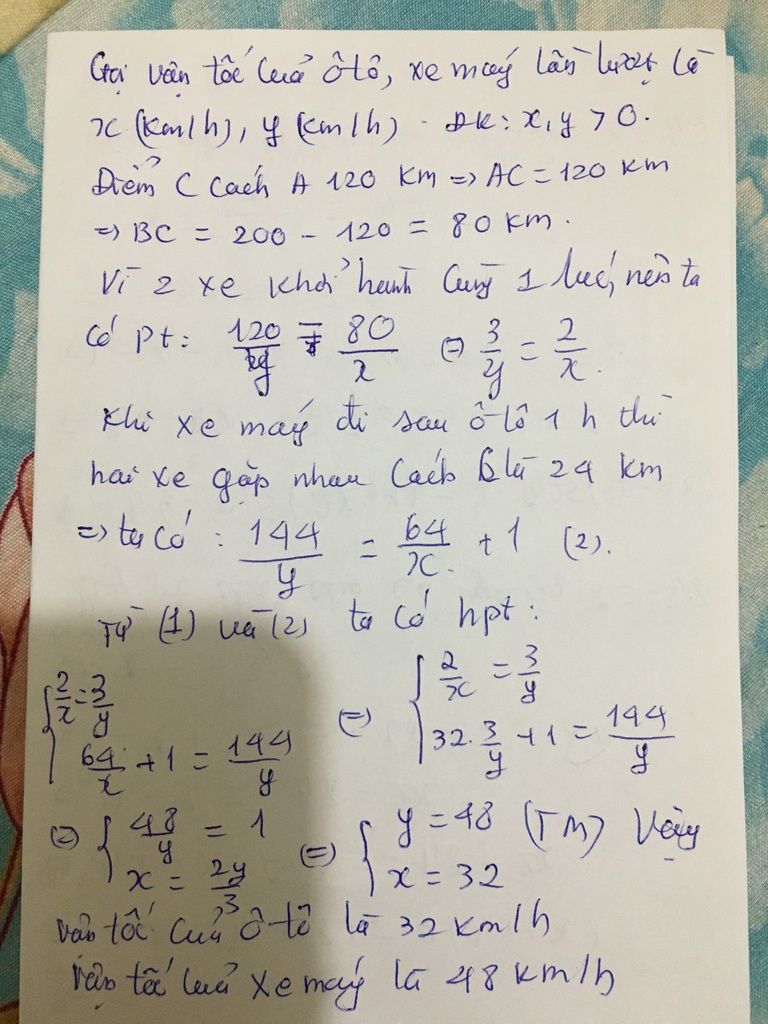 Gọi vận tốc của ô tô, xe máy lần lượt là
x (km/h), y (km/h). ĐK: x, y > 0.
Điểm C cách A 120 km => AC = 120 km
=> BC = 200 - 120 = 80 km.
Vì 2 xe khởi hành cùng 1 lúc, nên ta
có pt: 120/y = 80/x (=) 3/y = 2/x.
Khi xe máy đi sau ô tô 1 h thì
hai xe gặp nhau cách C là 24 km
=> ta có: 144/y = 64/x + 1 (2).
Từ (1) và (2) ta có hpt:
{ 2/x = 3/y (=) { 2/x = 3/y
64/x + 1 = 144/y 32. 3/y + 1 = 144/y
(=) { 48/y = 1 (=) { y = 48 (TM) Vậy
x = 2y/3 x = 32
vận tốc của ô tô là 32 km/h
vận tốc của xe máy là 48 km/h